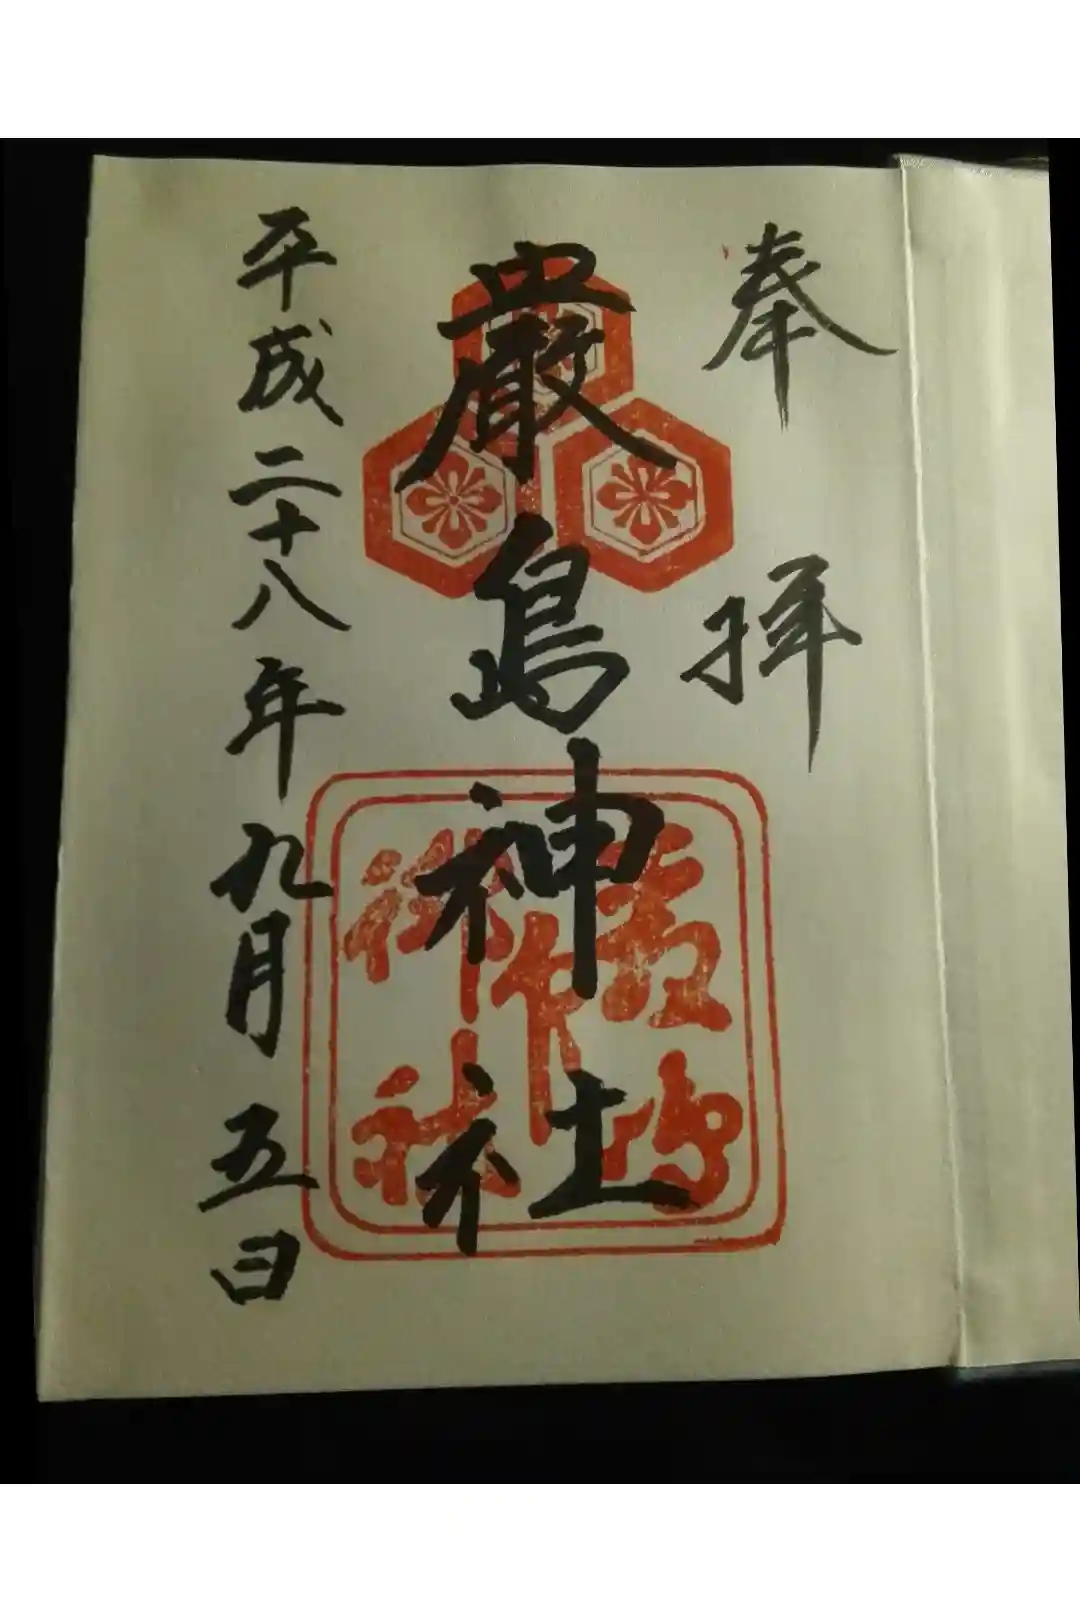 奉拝
嚴島神社
平成二十八年九月五日